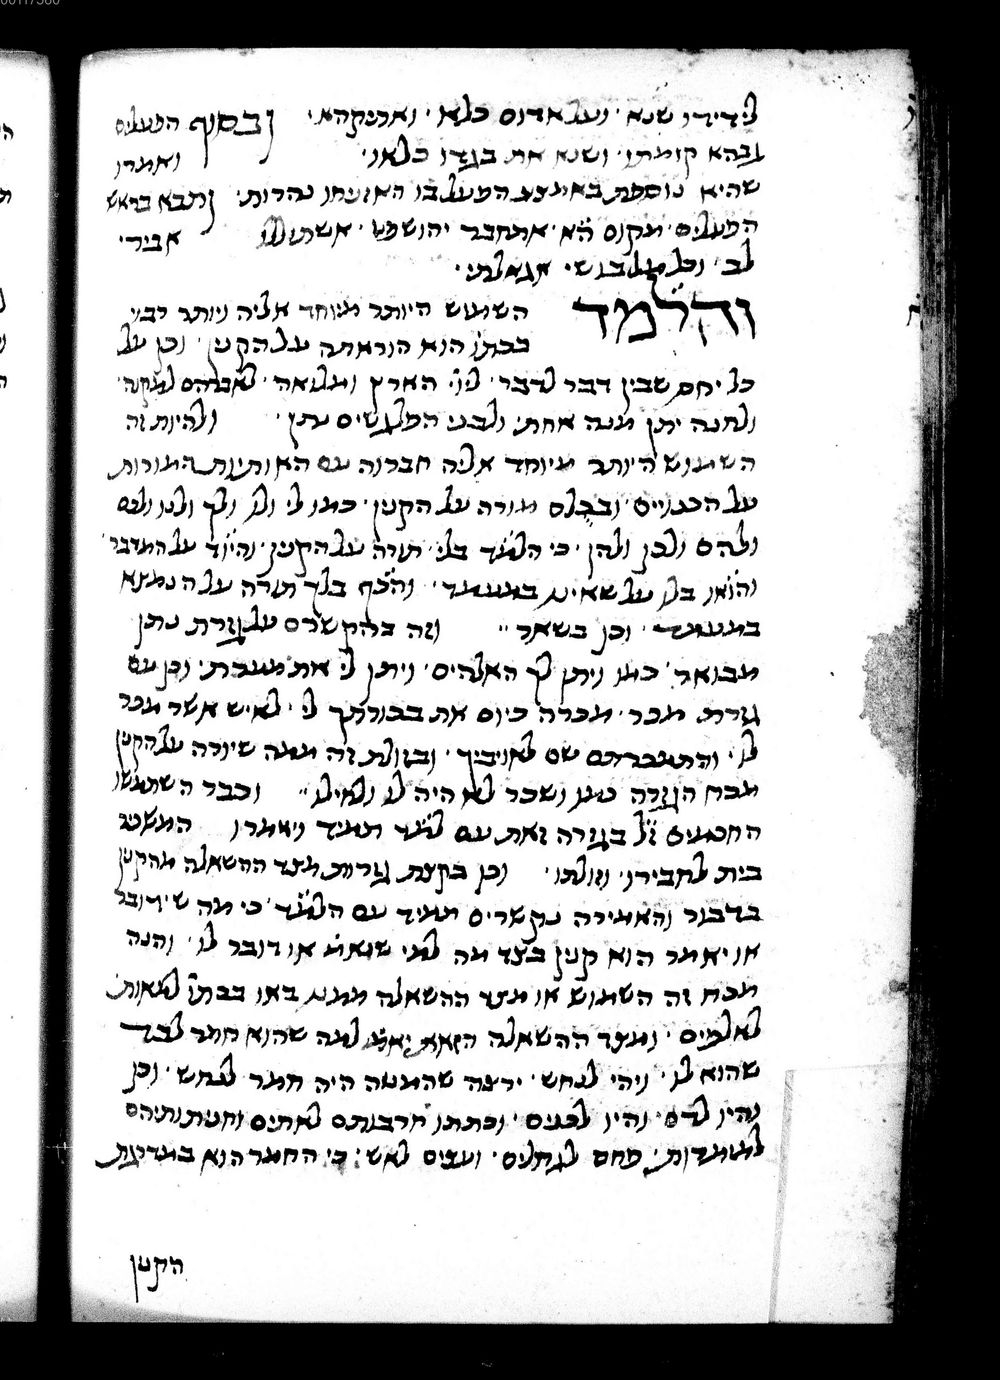 לידידו שנא׳ ועל אדום כלא׳ וארנקהא׳ ובסוף הפעלים
גבהא קומתו׳ ושנא את בגדו כלאו׳ ואמרו
שהיא נוספת באמצע הפעל בו האזניחו נהרות׳ ותבא בראש
הפעלים מקום ה״א אתחבר יהושפט׳ אשתוללו אבירי
לב׳ וכל מלבושי אגאלתי׳
והלמד השמוש היותר מיוחד אליה ויותר רבוי
בכתו׳ הוא הוראתה על הקנין׳ וכן על
כל יחס שבין דבר לדבר׳ ליי׳ הארץ ומלואה׳ לאברהם למקנה׳
ולחנה יתן מנה אחת׳ ולבני הפלגשים נתן׳ ולהיות זה
השמוש היותר מיוחד אליה חברוה עם האותיות המורות
על הכנויים ובכלם מורה על הקנין׳ כמו לי ולו ולך ולנו ולכם
ולהם ולכן ולהן׳ כי הלמ״ד בלי תורה על הקנין׳ והיו״ד על המדבר׳
והוא״ו בלו על שאינו במעמד׳ והכ״ף בלך תורה על הנמצא
במעמד׳ וכן בשאר׳׳ וזה בהקשרם על גזרת נתן
מבואר׳ כמו ויתן לך האלהים׳ ויתן לי את מערת׳ וכן עם
גזרת מכר׳ מכרה כיום את בכורתך לי׳ לאיש אשר מכר
לו׳ והתמכרתם שם לאויביך׳ ובזולת זה ממה שיורה על הקנין
מכח הגזרה כמו ושכר לא היה לו ולאילו׳׳ וכבר השתמשו
החכמים ז״ל בגזרה זאת עם למ״ד תמיד ויאמרו המשכיר
בית לחבירו׳ וזולתו׳ וכן בקצת גזרות מצד ההשאלה מהקנין
בדבור והאמירה נקשרים תמיד עם הלמ״ד׳ כי מה שידובר
או יאמר הוא קנין בצד מה למי שנאמ׳ או דובר לו׳ והנה
מכח זה השמוש או מצד ההשאלה ממנו באו בכתו׳ למאות׳
לאלפים׳ ומצד ההשאלה הזאת יאמ׳ למה שהוא חמר לבד
שהוא לו׳ ויהי לנחש׳ ירצה שהמטה היה חמר לנחש׳ וכן
והיו לדם׳ והיו לכנים׳ וכתתו חרבותם לאתים וחניתותיהם
למזמרות׳ פחם לגחלים׳ ועצים לאש׳ כי החמר הוא במדרגת
הקנין